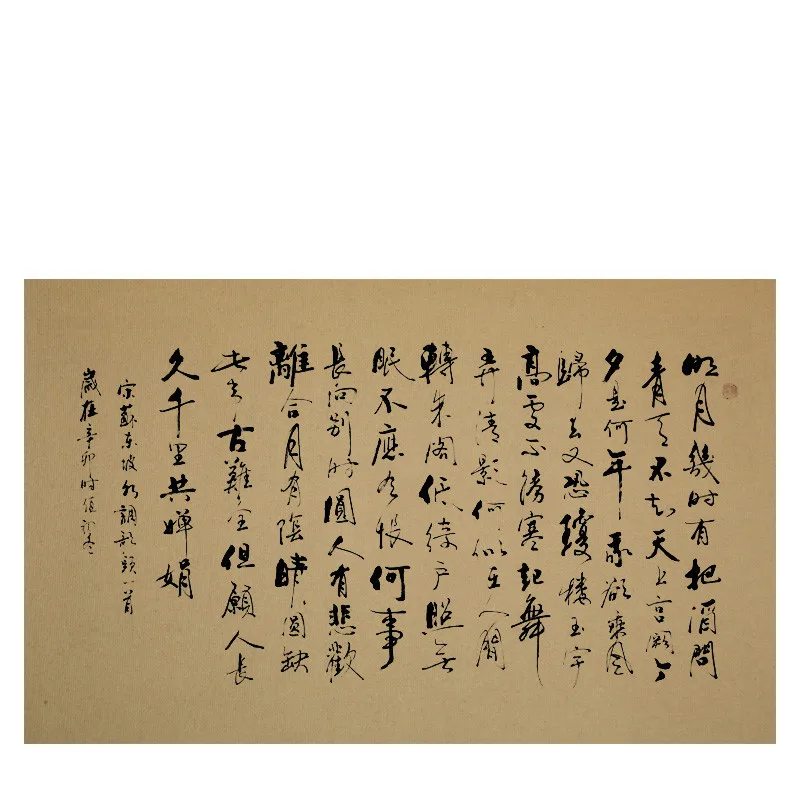 明月幾时有把酒問
青天不知天上宫闕今
夕是何年我欲乘風
歸去又恐瓊楼玉宇
高處不勝寒起舞
弄清影何似在人間
轉朱閣低綺户照無
眠不應有恨何事
長向别时圓人有悲歡
離合月有陰晴圓缺
此事古難全但願人長
久千里共嬋娟
宋蘇东坡水調歌頭一首
歲在辛卯时值